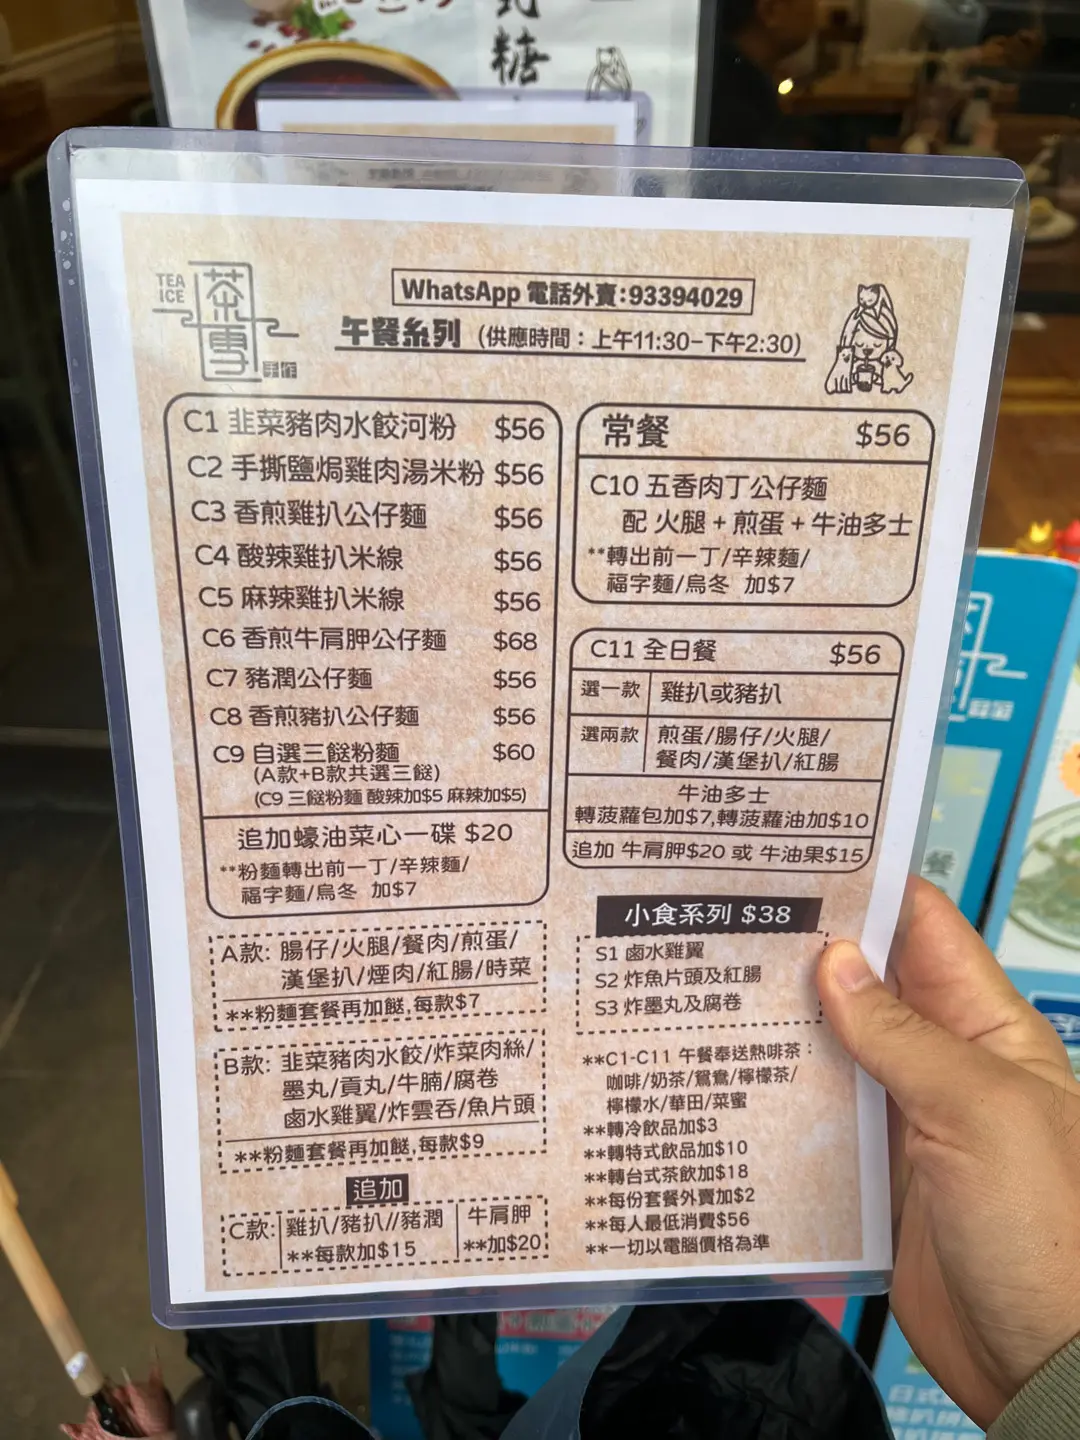 式
糖
TEA
ICE
茶
雪
WhatsApp 電話外賣:93394029
午餐系列 (供應時間：上午11:30-下午2:30)
C1 韭菜豬肉水餃河粉 $56
C2 手撕鹽焗雞肉湯米粉 $56
C3 香煎雞扒公仔麵 $56
C4 酸辣雞扒米線 $56
C5 麻辣雞扒米線 $56
C6 香煎牛肩胛公仔麵 $68
C7 豬潤公仔麵 $56
C8 香煎豬扒公仔麵 $56
C9 自選三餸粉麵 $60
(A款+B款共選三餸)
(C9 三餸粉麵 酸辣加$5 麻辣加$5)
追加蠔油菜心一碟 $20
**粉麵轉出前一丁/辛辣麵/
福字麵/烏冬 加$7
A款: 腸仔/火腿/餐肉/煎蛋/
漢堡扒/煙肉/紅腸/時菜
**粉麵套餐再加餸,每款$7
B款: 韭菜豬肉水餃/炸菜肉絲/
墨丸/貢丸/牛腩/腐卷
鹵水雞翼/炸雲吞/魚片頭
**粉麵套餐再加餸,每款$9
追加
C款: 雞扒/豬扒//豬潤
**每款加$15
牛肩胛
**加$20
常餐 $56
C10 五香肉丁公仔麵
配 火腿+煎蛋+牛油多士
**轉出前一丁/辛辣麵/
福字麵/烏冬 加$7
C11 全日餐 $56
選一款 雞扒或豬扒
選兩款 煎蛋/腸仔/火腿/
餐肉/漢堡扒/紅腸
牛油多士
轉菠蘿包加$7,轉菠蘿油加$10
追加 牛肩胛$20 或 牛油果$15
小食系列 $38
S1 鹵水雞翼
S2 炸魚片頭及紅腸
S3 炸墨丸及腐卷
**C1-C11 午餐奉送熱啡茶：
咖啡/奶茶/鴛鴦/檸檬茶/
檸檬水/華田/菜蜜
**轉冷飲品加$3
**轉特式飲品加$10
**轉台式茶飲加$18
**每份套餐外賣加$2
**每人最低消費$56
**一切以電腦價格為準
餐
日式